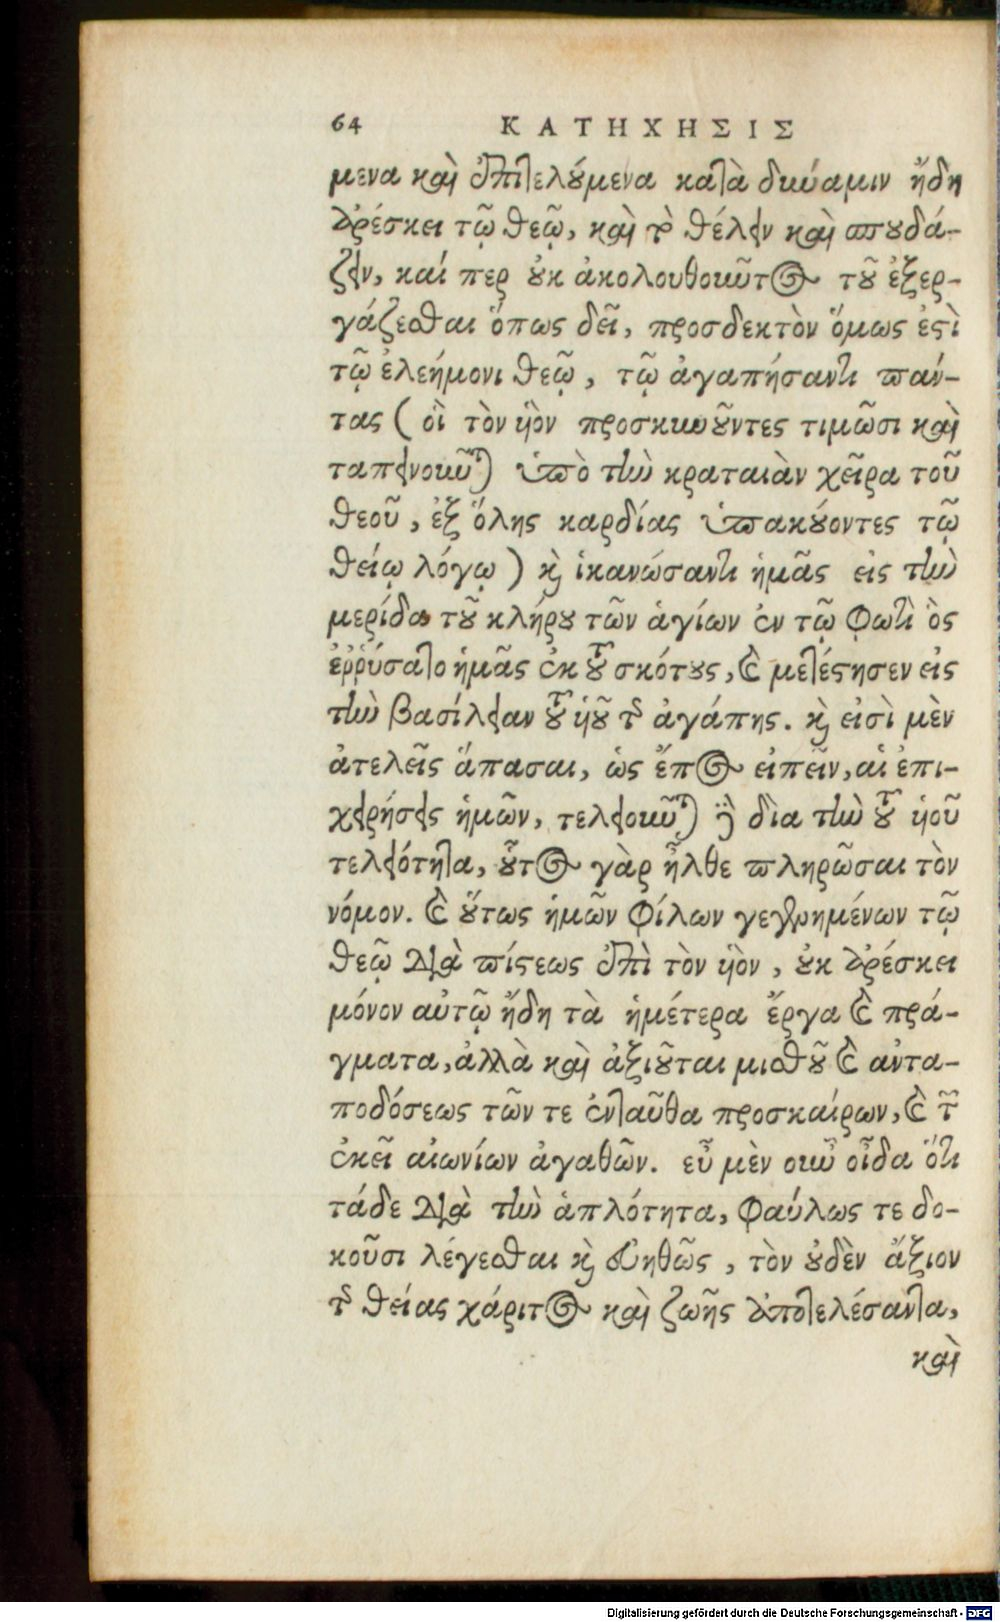 64 ΚΑΤΗΧΗΣΙΣ
μενα καὶ ἐπιτελούμενα κατὰ δύναμιν ἤδη
ἀρέσκει τῷ θεῷ, καὶ τὸ θέλειν καὶ σπουδά-
ζειν, καί περ οὐκ ἀκολουθοῦντος τοῦ ἐξερ-
γάζεσθαι ὅπως δεῖ, προσδεκτὸν ὅμως ἐστὶ
τῷ ἐλεήμονι θεῷ, τῷ ἀγαπήσαντι πάν-
τας (οἳ τὸν υἱὸν προσκυνοῦντες τιμῶσι καὶ
ταπεινοῦνται ὑπὸ τὴν κραταιὰν χεῖρα τοῦ
θεοῦ, ἐξ ὅλης καρδίας ὑπακούοντες τῷ
θείῳ λόγῳ) καὶ ἱκανώσαντι ἡμᾶς εἰς τὴν
μερίδα τοῦ κλήρου τῶν ἁγίων ἐν τῷ φωτὶ ὃς
ἐῤῥύσατο ἡμᾶς ἐκ τοῦ σκότους, καὶ μετέστησεν εἰς
τὴν βασίλειαν τοῦ υἱοῦ τῆς ἀγάπης. καὶ εἰσὶ μὲν
ἀτελεῖς ἅπασαι, ὡς ἔπος εἰπεῖν, αἱ ἐπι-
χειρήσεις ἡμῶν, τελειοῦνται δὲ δὶα τὴν τοῦ υἱοῦ
τελειότητα, οὗτος γὰρ ἦλθε πληρῶσαι τὸν
νόμον. καὶ οὕτως ἡμῶν φίλων γεγενημένων τῷ
θεῷ διὰ πίστεως ἐπὶ τὸν υἱὸν, οὐκ ἀρέσκει
μόνον αὐτῷ ἤδη τὰ ἡμέτερα ἔργα καὶ πρά-
γματα, ἀλλὰ καὶ ἀξιοῦται μισθοῦ καὶ αντα-
ποδόσεως τῶν τε ἐνταῦθα προσκαίρων, καὶ τῶν
ἐκεῖ αἰωνίων ἀγαθῶν. εὖ μὲν οὖν οἶδα ὅτι
τάδε διὰ τὴν ἁπλότητα, φαύλως τε δο-
κοῦσι λέγεσθαι καὶ εὐηθῶς, τὸν οὐδὲν ἄξιον
τῆς θείας χάριτος καὶ ζωῆς ἀποτελέσαντα,
καὶ
Digitalisierung gefördert durch die Deutsche Forschungsgemeinschaft - DFG